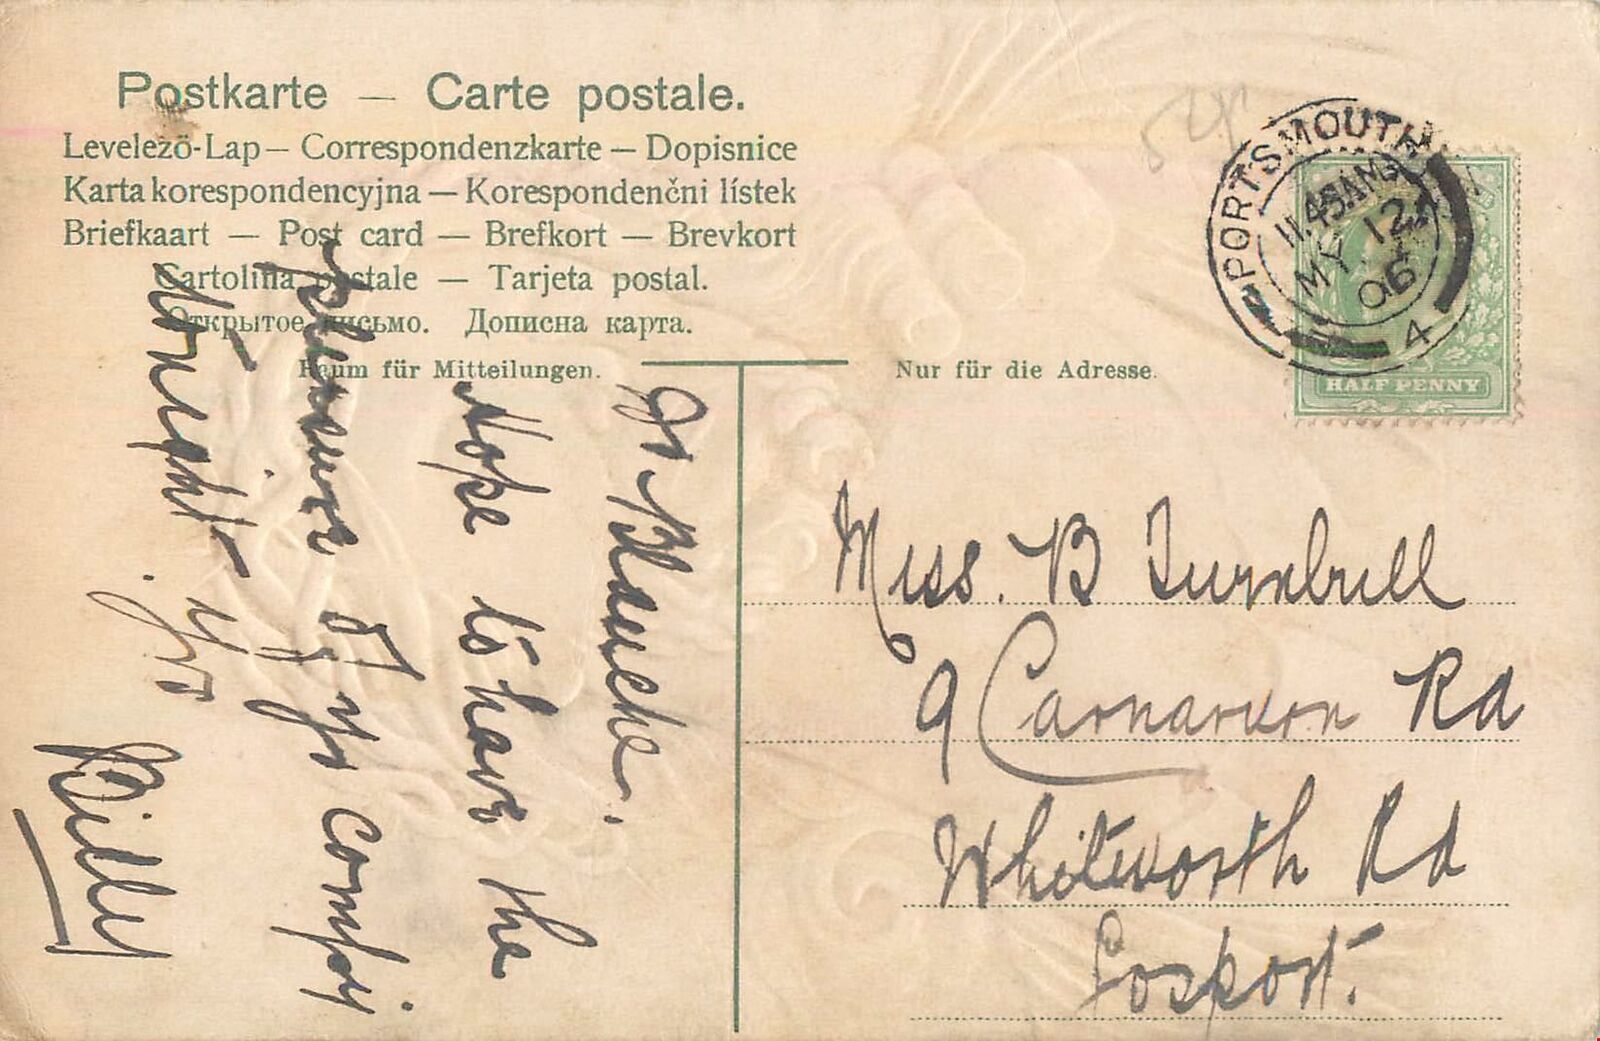 Postkarte — Carte postale.
Levelező-Lap — Correspondenzkarte — Dopisnice
Karta korespondencyjna — Korespondenčni lístek
Briefkaart — Post card — Brefkort — Brevkort
Cartolina postale — Tarjeta postal.
Открытое письмо. Дописна карта.
Raum für Mitteilungen.
Nur für die Adresse.
PORTSMOUTH
11.45AM
MY 12
06
4
HALF PENNY
Blanche.
Hope to have the
pleasure of yr compy
tonight
yrs
Billy
Miss. B Turnbull
9 Carnarvon Rd
Whitworth Rd
Gosport.